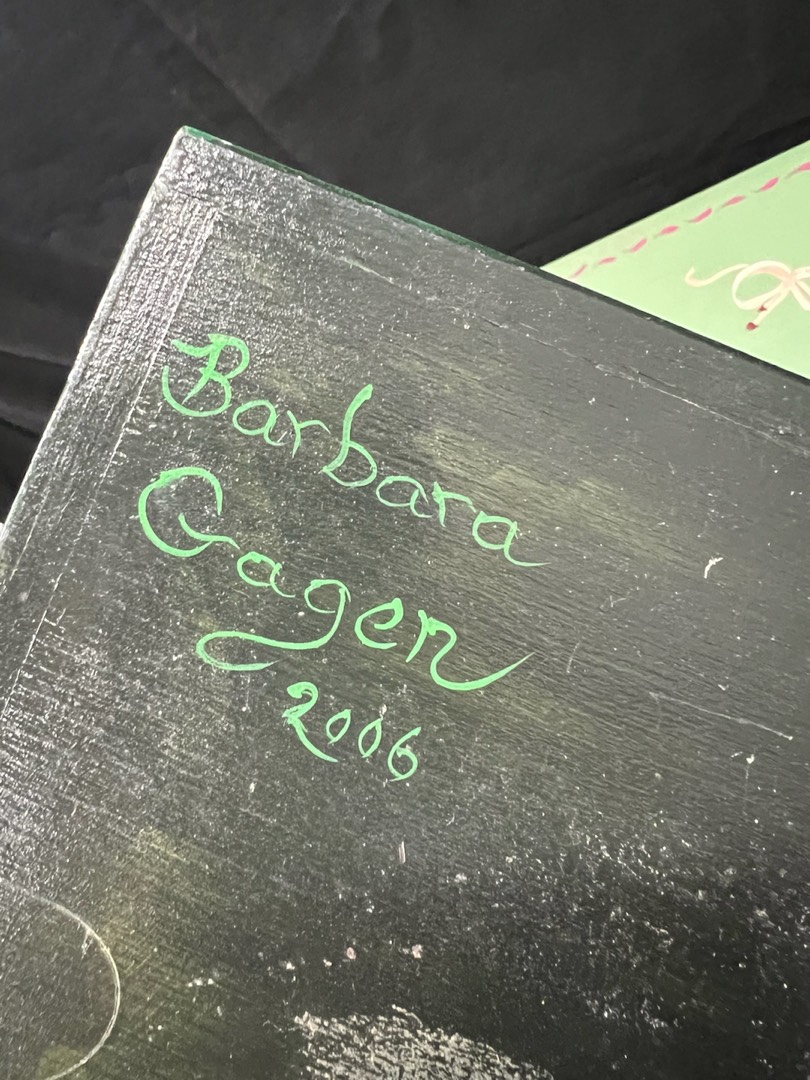 Barbara
Gagen
2006